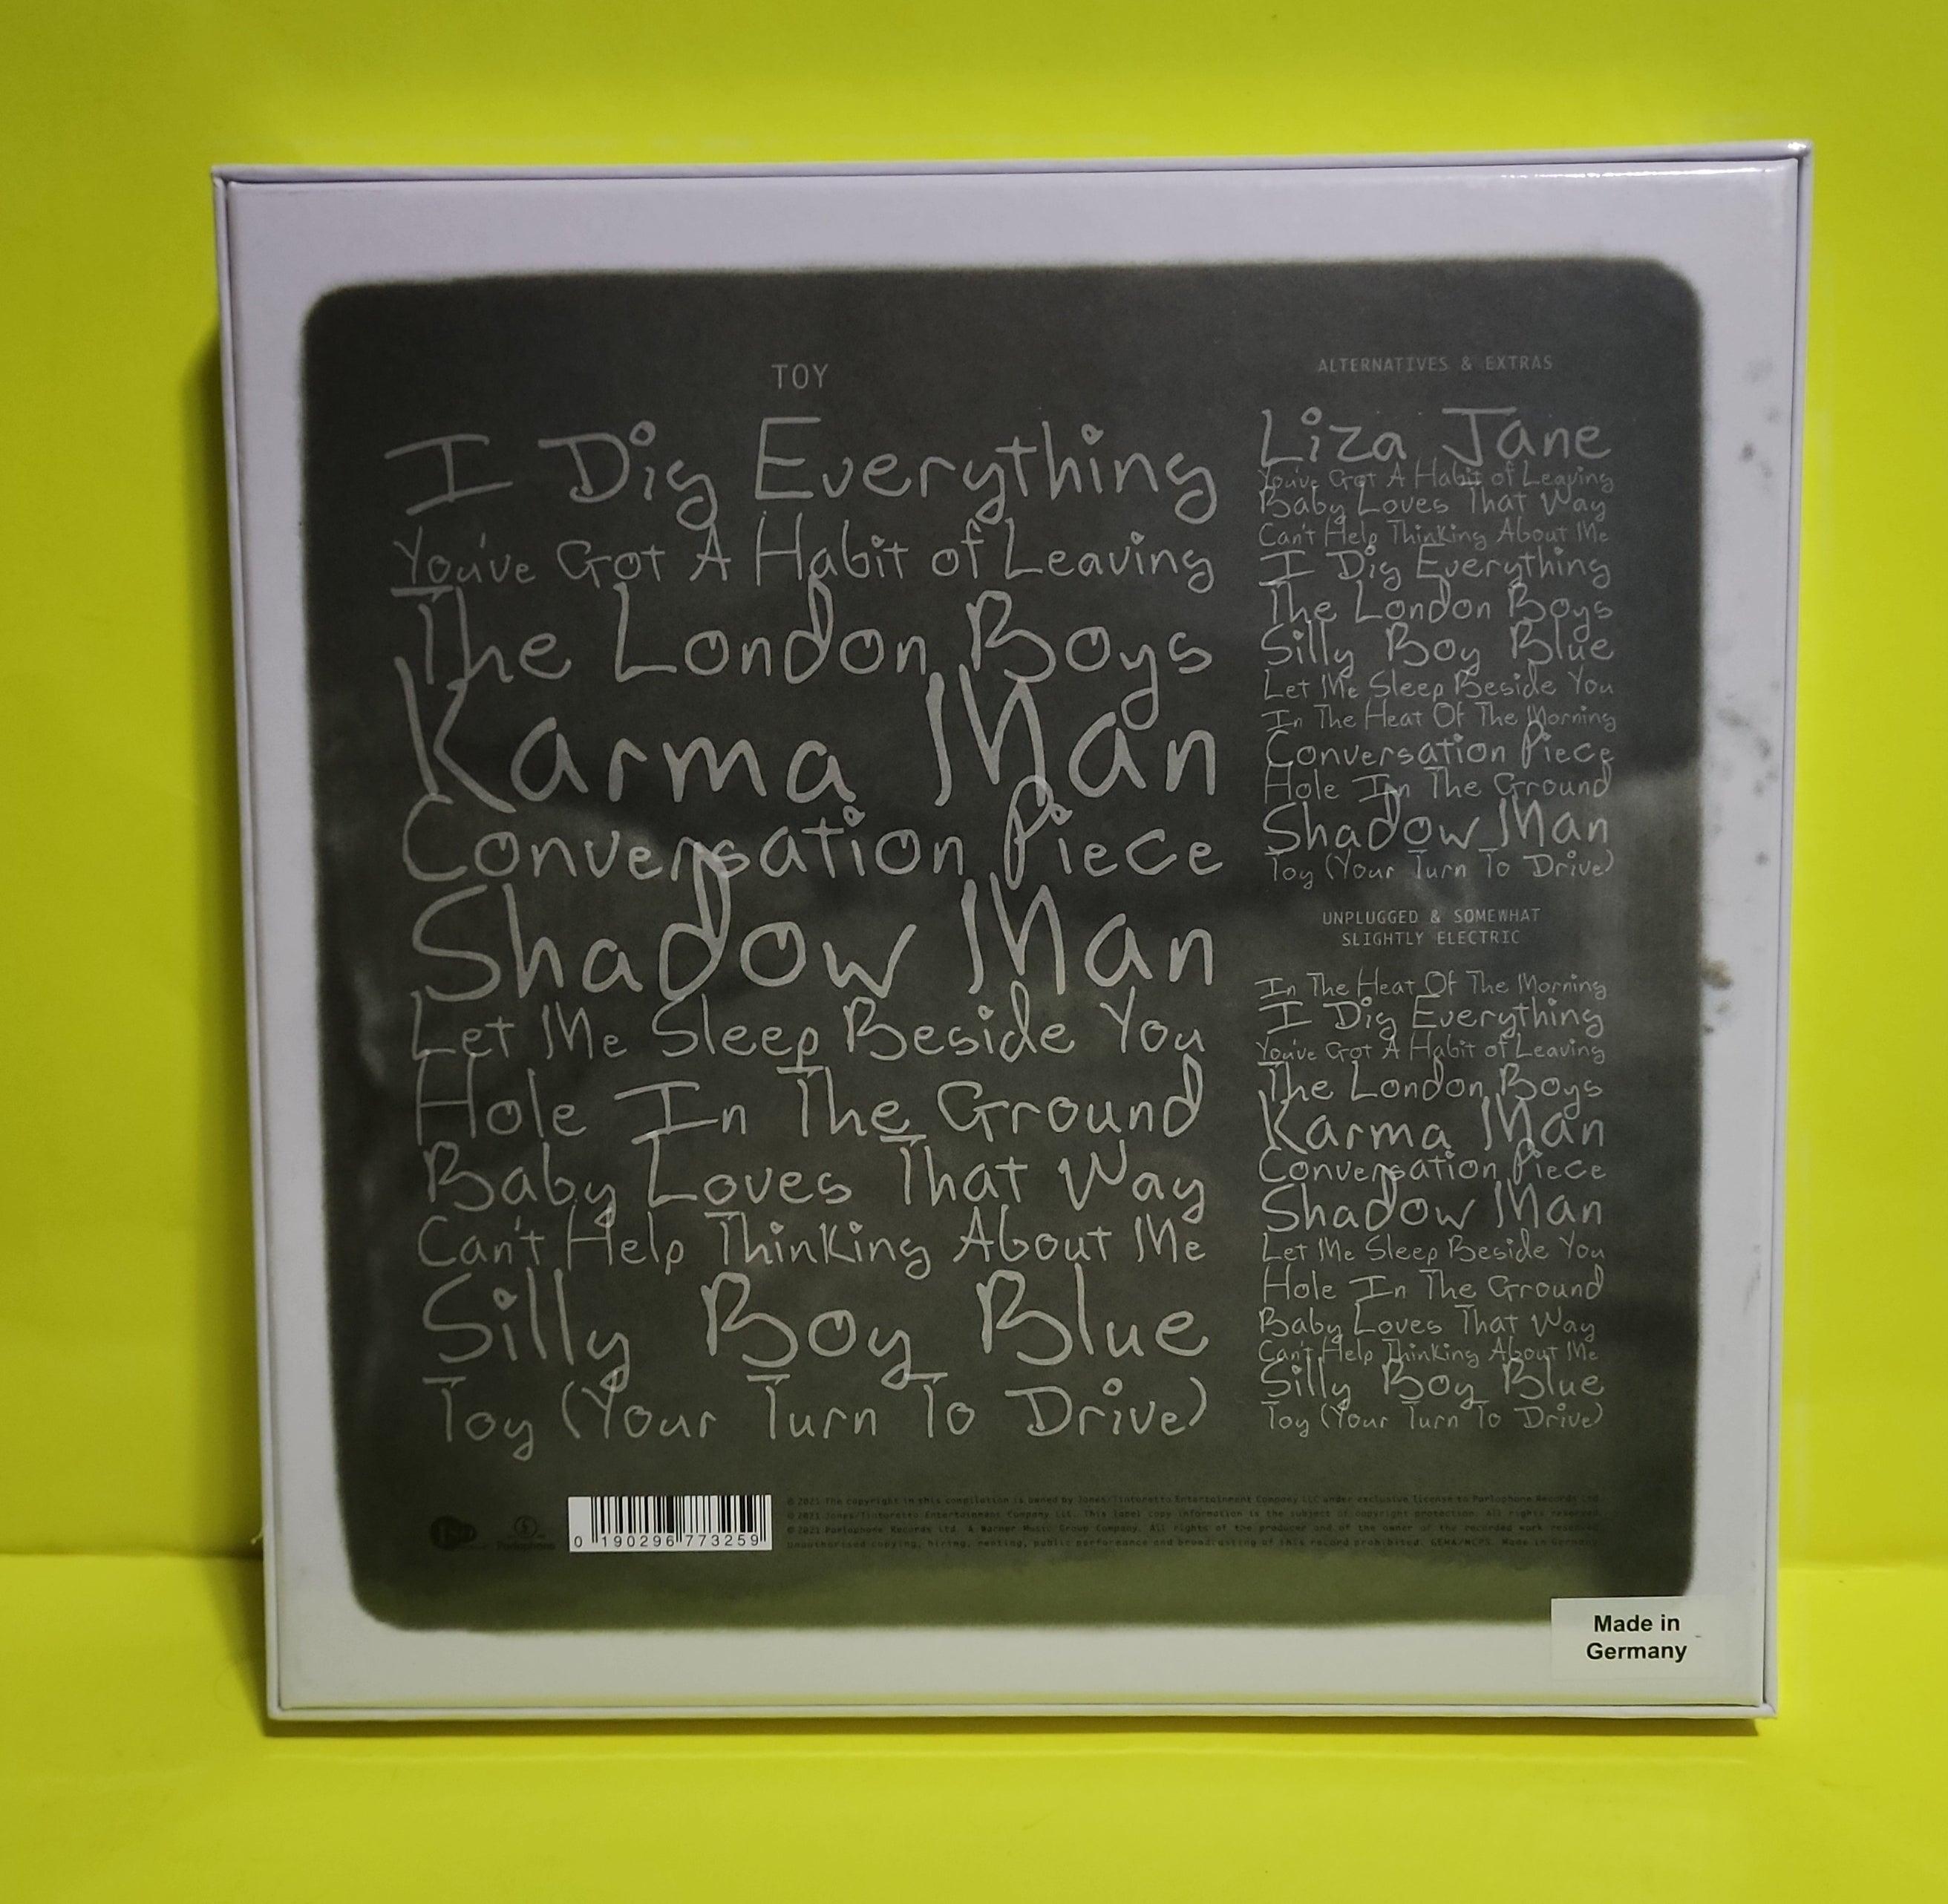 TOY
I Dig Everything
You've Got A Habit of Leaving
The London Boys
Karma Man
Conversation Piece
Shadow Man
Let Me Sleep Beside You
Hole In The Ground
Baby Loves That Way
Can't Help Thinking About Me
Silly Boy Blue
Toy (Your Turn To Drive)
ALTERNATIVES & EXTRAS
Liza Jane
You've Got A Habit of Leaving
Baby Loves That Way
Can't Help Thinking About Me
I Dig Everything
The London Boys
Silly Boy Blue
Let Me Sleep Beside You
In The Heat Of The Morning
Conversation Piece
Hole In The Ground
Shadow Man
Toy (Your Turn To Drive)
UNPLUGGED & SOMEWHAT
SLIGHTLY ELECTRIC
In The Heat Of The Morning
I Dig Everything
You've Got A Habit of Leaving
The London Boys
Karma Man
Conversation Piece
Shadow Man
Let Me Sleep Beside You
Hole In The Ground
Baby Loves That Way
Can't Help Thinking About Me
Silly Boy Blue
Toy (Your Turn To Drive)
Parlophone
0 190296 773259
© 2021 The copyright in this compilation is owned by Jones/Tintoretto Entertainment Company LLC under exclusive license to Parlophone Records Ltd.
© 2021 Jones/Tintoretto Entertainment Company LLC. This label copy information is the subject of copyright protection. All rights reserved.
© 2021 Parlophone Records Ltd. A Warner Music Group Company. All rights of the producer and of the owner of the recorded work reserved.
Unauthorised copying, hiring, renting, public performance and broadcasting of this record prohibited. GEMA/MCPS. Made in Germany
Made in
Germany